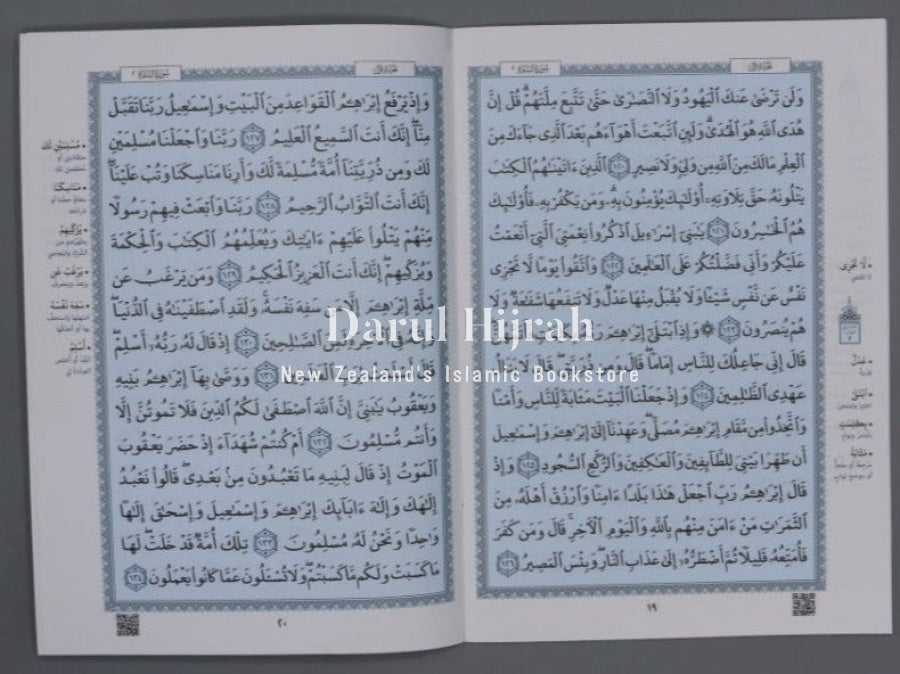 سُورَةُ البَقَرَةِ ٢
وَلَن تَرْضَىٰ عَنكَ ٱلْيَهُودُ وَلَا ٱلنَّصَٰرَىٰ حَتَّىٰ تَتَّبِعَ مِلَّتَهُمْ ۗ قُلْ إِنَّ
هُدَى ٱللَّهِ هُوَ ٱلْهُدَىٰ ۗ وَلَئِنِ ٱتَّبَعْتَ أَهْوَآءَهُم بَعْدَ ٱلَّذِى جَآءَكَ مِنَ
ٱلْعِلْمِ مَا لَكَ مِنَ ٱللَّهِ مِن وَلِىٍّ وَلَا نَصِيرٍ ١٢٠ ٱلَّذِينَ ءَاتَيْنَٰهُمُ ٱلْكِتَٰبَ
يَتْلُونَهُۥ حَقَّ تِلَاوَتِهِۦٓ أُو۟لَٰٓئِكَ يُؤْمِنُونَ بِهِۦ ۗ وَمَن يَكْفُرْ بِهِۦ فَأُو۟لَٰٓئِكَ
هُمُ ٱلْخَٰسِرُونَ ١٢١ يَٰبَنِىٓ إِسْرَٰٓءِيلَ ٱذْكُرُوا۟ نِعْمَتِىَ ٱلَّتِىٓ أَنْعَمْتُ
عَلَيْكُمْ وَأَنِّى فَضَّلْتُكُمْ عَلَى ٱلْعَٰلَمِينَ ١٢٢ وَٱتَّقُوا۟ يَوْمًا لَّا تَجْزِى
نَفْسٌ عَن نَّفْسٍ شَيْـًٔا وَلَا يُقْبَلُ مِنْهَا عَدْلٌ وَلَا تَنفَعُهَا شَفَٰعَةٌ وَلَا
هُمْ يُنصَرُونَ ١٢٣ ۞ وَإِذِ ٱبْتَلَىٰٓ إِبْرَٰهِـۧمَ رَبُّهُۥ بِكَلِمَٰتٍ فَأَتَمَّهُنَّ ۖ
قَالَ إِنِّى جَاعِلُكَ لِلنَّاسِ إِمَامًا ۖ قَالَ وَمِن ذُرِّيَّتِى ۖ قَالَ لَا يَنَالُ
عَهْدِى ٱلظَّٰلِمِينَ ١٢٤ وَإِذْ جَعَلْنَا ٱلْبَيْتَ مَثَابَةً لِّلنَّاسِ وَأَمْنًا
وَٱتَّخِذُوا۟ مِن مَّقَامِ إِبْرَٰهِـۧمَ مُصَلًّى ۖ وَعَهِدْنَآ إِلَىٰٓ إِبْرَٰهِـۧمَ وَإِسْمَٰعِيلَ
أَن طَهِّرَا بَيْتِىَ لِلطَّآئِفِينَ وَٱلْعَٰكِفِينَ وَٱلرُّكَّعِ ٱلسُّجُودِ ١٢٥ وَإِذْ
قَالَ إِبْرَٰهِـۧمُ رَبِّ ٱجْعَلْ هَٰذَا بَلَدًا ءَامِنًا وَٱرْزُقْ أَهْلَهُۥ مِنَ
ٱلثَّمَرَٰتِ مَنْ ءَامَنَ مِنْهُم بِٱللَّهِ وَٱلْيَوْمِ ٱلْءَاخِرِ ۖ قَالَ وَمَن كَفَرَ
فَأُمَتِّعُهُۥ قَلِيلًا ثُمَّ أَضْطَرُّهُۥٓ إِلَىٰ عَذَابِ ٱلنَّارِ ۖ وَبِئْسَ ٱلْمَصِيرُ ١٢٦
١٩
• لَا تَجْزِى
• عَدْلٌ
• ٱبْتَلَىٰ
• بِكَلِمَٰتٍ
• مَثَابَةً
سُورَةُ البَقَرَةِ ٢
وَإِذْ يَرْفَعُ إِبْرَٰهِـۧمُ ٱلْقَوَاعِدَ مِنَ ٱلْبَيْتِ وَإِسْمَٰعِيلُ رَبَّنَا تَقَبَّلْ
مِنَّآ ۖ إِنَّكَ أَنتَ ٱلسَّمِيعُ ٱلْعَلِيمُ ١٢٧ رَبَّنَا وَٱجْعَلْنَا مُسْلِمَيْنِ
لَكَ وَمِن ذُرِّيَّتِنَآ أُمَّةً مُّسْلِمَةً لَّكَ وَأَرِنَا مَنَاسِكَنَا وَتُبْ عَلَيْنَآ ۖ
إِنَّكَ أَنتَ ٱلتَّوَّابُ ٱلرَّحِيمُ ١٢٨ رَبَّنَا وَٱبْعَثْ فِيهِمْ رَسُولًا
مِّنْهُمْ يَتْلُوا۟ عَلَيْهِمْ ءَايَٰتِكَ وَيُعَلِّمُهُمُ ٱلْكِتَٰبَ وَٱلْحِكْمَةَ
وَيُزَكِّيهِمْ ۚ إِنَّكَ أَنتَ ٱلْعَزِيزُ ٱلْحَكِيمُ ١٢٩ وَمَن يَرْغَبُ عَن
مِّلَّةِ إِبْرَٰهِـۧمَ إِلَّا مَن سَفِهَ نَفْسَهُۥ ۚ وَلَقَدِ ٱصْطَفَيْنَٰهُ فِى ٱلدُّنْيَا ۖ
وَإِنَّهُۥ فِى ٱلْءَاخِرَةِ لَمِنَ ٱلصَّٰلِحِينَ ١٣٠ إِذْ قَالَ لَهُۥ رَبُّهُۥٓ أَسْلِمْ ۖ
قَالَ أَسْلَمْتُ لِرَبِّ ٱلْعَٰلَمِينَ ١٣١ وَوَصَّىٰ بِهَآ إِبْرَٰهِـۧمُ بَنِيهِ
وَيَعْقُوبُ يَٰبَنِىَّ إِنَّ ٱللَّهَ ٱصْطَفَىٰ لَكُمُ ٱلدِّينَ فَلَا تَمُوتُنَّ إِلَّا
وَأَنتُم مُّسْلِمُونَ ١٣٢ أَمْ كُنتُمْ شُهَدَآءَ إِذْ حَضَرَ يَعْقُوبَ
ٱلْمَوْتُ إِذْ قَالَ لِبَنِيهِ مَا تَعْبُدُونَ مِنۢ بَعْدِى قَالُوا۟ نَعْبُدُ
إِلَٰهَكَ وَإِلَٰهَ ءَابَآئِكَ إِبْرَٰهِـۧمَ وَإِسْمَٰعِيلَ وَإِسْحَٰقَ إِلَٰهًا
وَٰحِدًا وَنَحْنُ لَهُۥ مُسْلِمُونَ ١٣٣ تِلْكَ أُمَّةٌ قَدْ خَلَتْ ۖ لَهَا
مَا كَسَبَتْ وَلَكُم مَّا كَسَبْتُمْ ۖ وَلَا تُسْـَٔلُونَ عَمَّا كَانُوا۟ يَعْمَلُونَ ١٣٤
٢٠
• مُسْلِمَيْنِ لَكَ
• مَنَاسِكَنَا
• يُزَكِّيهِمْ
• يَرْغَبُ عَن
• سَفِهَ نَفْسَهُ
• أَسْلِمْ
Darul Hijrah
New Zealand's Islamic Bookstore